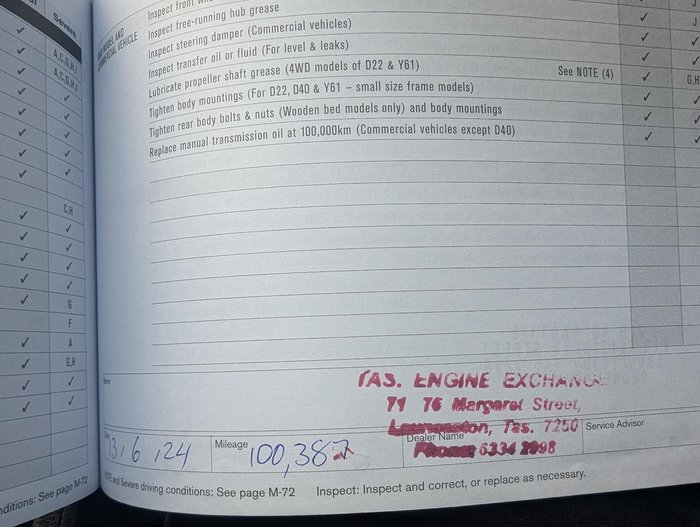 Severe
A,C,G,H,I
A,C,G,H,I
C,H
G
F
A
G,H
nditions: See page M-72
COMMERCIAL VEHICLE
Inspect front
Inspect free-running hub grease
Inspect steering damper (Commercial vehicles)
Inspect transfer oil or fluid (For level & leaks)
Lubricate propeller shaft grease (4WD models of D22 & Y61) See NOTE (4) G,H
Tighten body mountings (For D22, D40 & Y61 – small size frame models)
Tighten rear body bolts & nuts (Wooden bed models only) and body mountings
Replace manual transmission oil at 100,000km (Commercial vehicles except D40)
TAS. ENGINE EXCHANGE
71 76 Margaret Street,
Launceston, Tas. 7250
Phone: 6334 2998
13/6/24 Mileage 100,387 Dealer Name Service Advisor
NOTE and Severe driving conditions: See page M-72 Inspect: Inspect and correct, or replace as necessary.